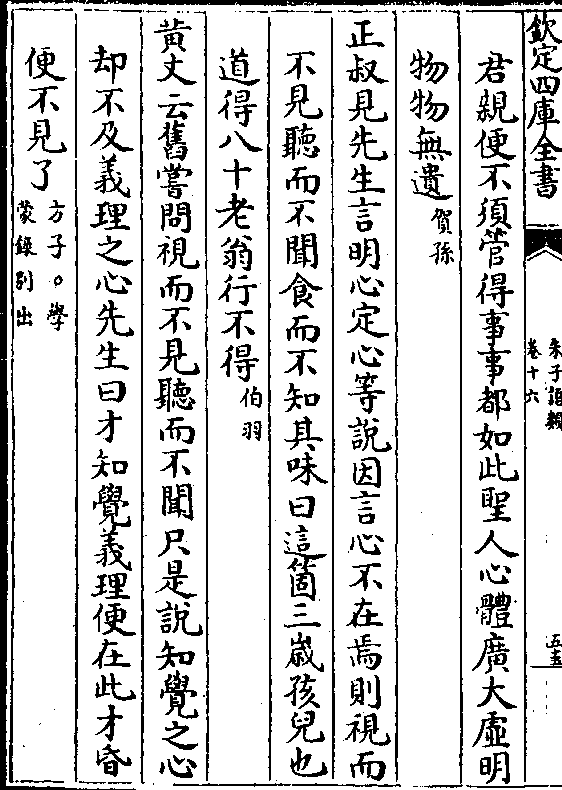 欽定四庫全書
朱子語類
卷十六
五五
君親便不須管得事事都如此聖人心體廣大虛明
物物無遺賀孫
正叔見先生言明心定心等說因言心不在焉則視而
不見聽而不聞食而不知其味曰這箇三歲孩兒也
道得八十老翁行不得伯羽
黄丈云舊嘗問視而不見聽而不聞只是說知覺之心
却不及義理之心先生曰才知覺義理便在此才昏
便不見了方子○學蒙錄别出